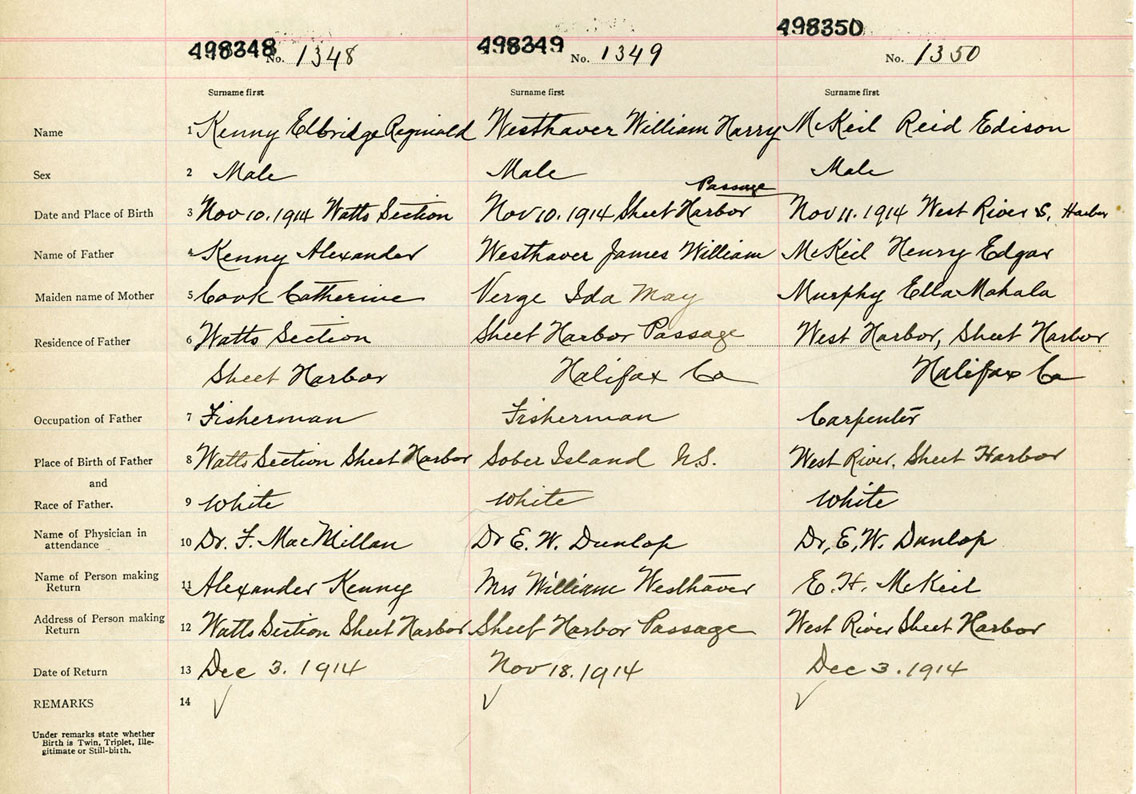 498348 No. 1348 498349 No. 1349 498350 No. 1350
Surname first Surname first Surname first
Name 1 Kenny Elbridge Reginald Westhaver William Harry McKeil Reid Edison
Sex 2 Male Male Male
Passage
Date and Place of Birth 3 Nov 10. 1914 Watts Section Nov 10. 1914 Sheet Harbor Nov 11. 1914 West River S. Harbor
Name of Father 4 Kenny Alexander Westhaver James William McKeil Henry Edgar
Maiden name of Mother 5 Cook Catherine Verge Ida May Murphy Ella Mahala
Residence of Father 6 Watts Section Sheet Harbor Passage West Harbor, Sheet Harbor
Sheet Harbor Halifax Co Halifax Co
Occupation of Father 7 Fisherman Fisherman Carpenter
Place of Birth of Father 8 Watts Section Sheet Harbor Sober Island N.S. West River, Sheet Harbor
and
Race of Father. 9 White White White
Name of Physician in
attendance 10 Dr. F. MacMillan Dr E. W. Dunlop Dr, E, W. Dunlop
Name of Person making
Return 11 Alexander Kenny Mrs William Westhaver E. H. McKeil
Address of Person making
Return 12 Watts Section Sheet Harbor Sheet Harbor Passage West River Sheet Harbor
Date of Return 13 Dec 3. 1914 Nov 18. 1914 Dec 3. 1914
REMARKS 14 ✓ ✓ ✓
Under remarks state whether
Birth is Twin, Triplet, Ille-
gitimate or Still-birth.